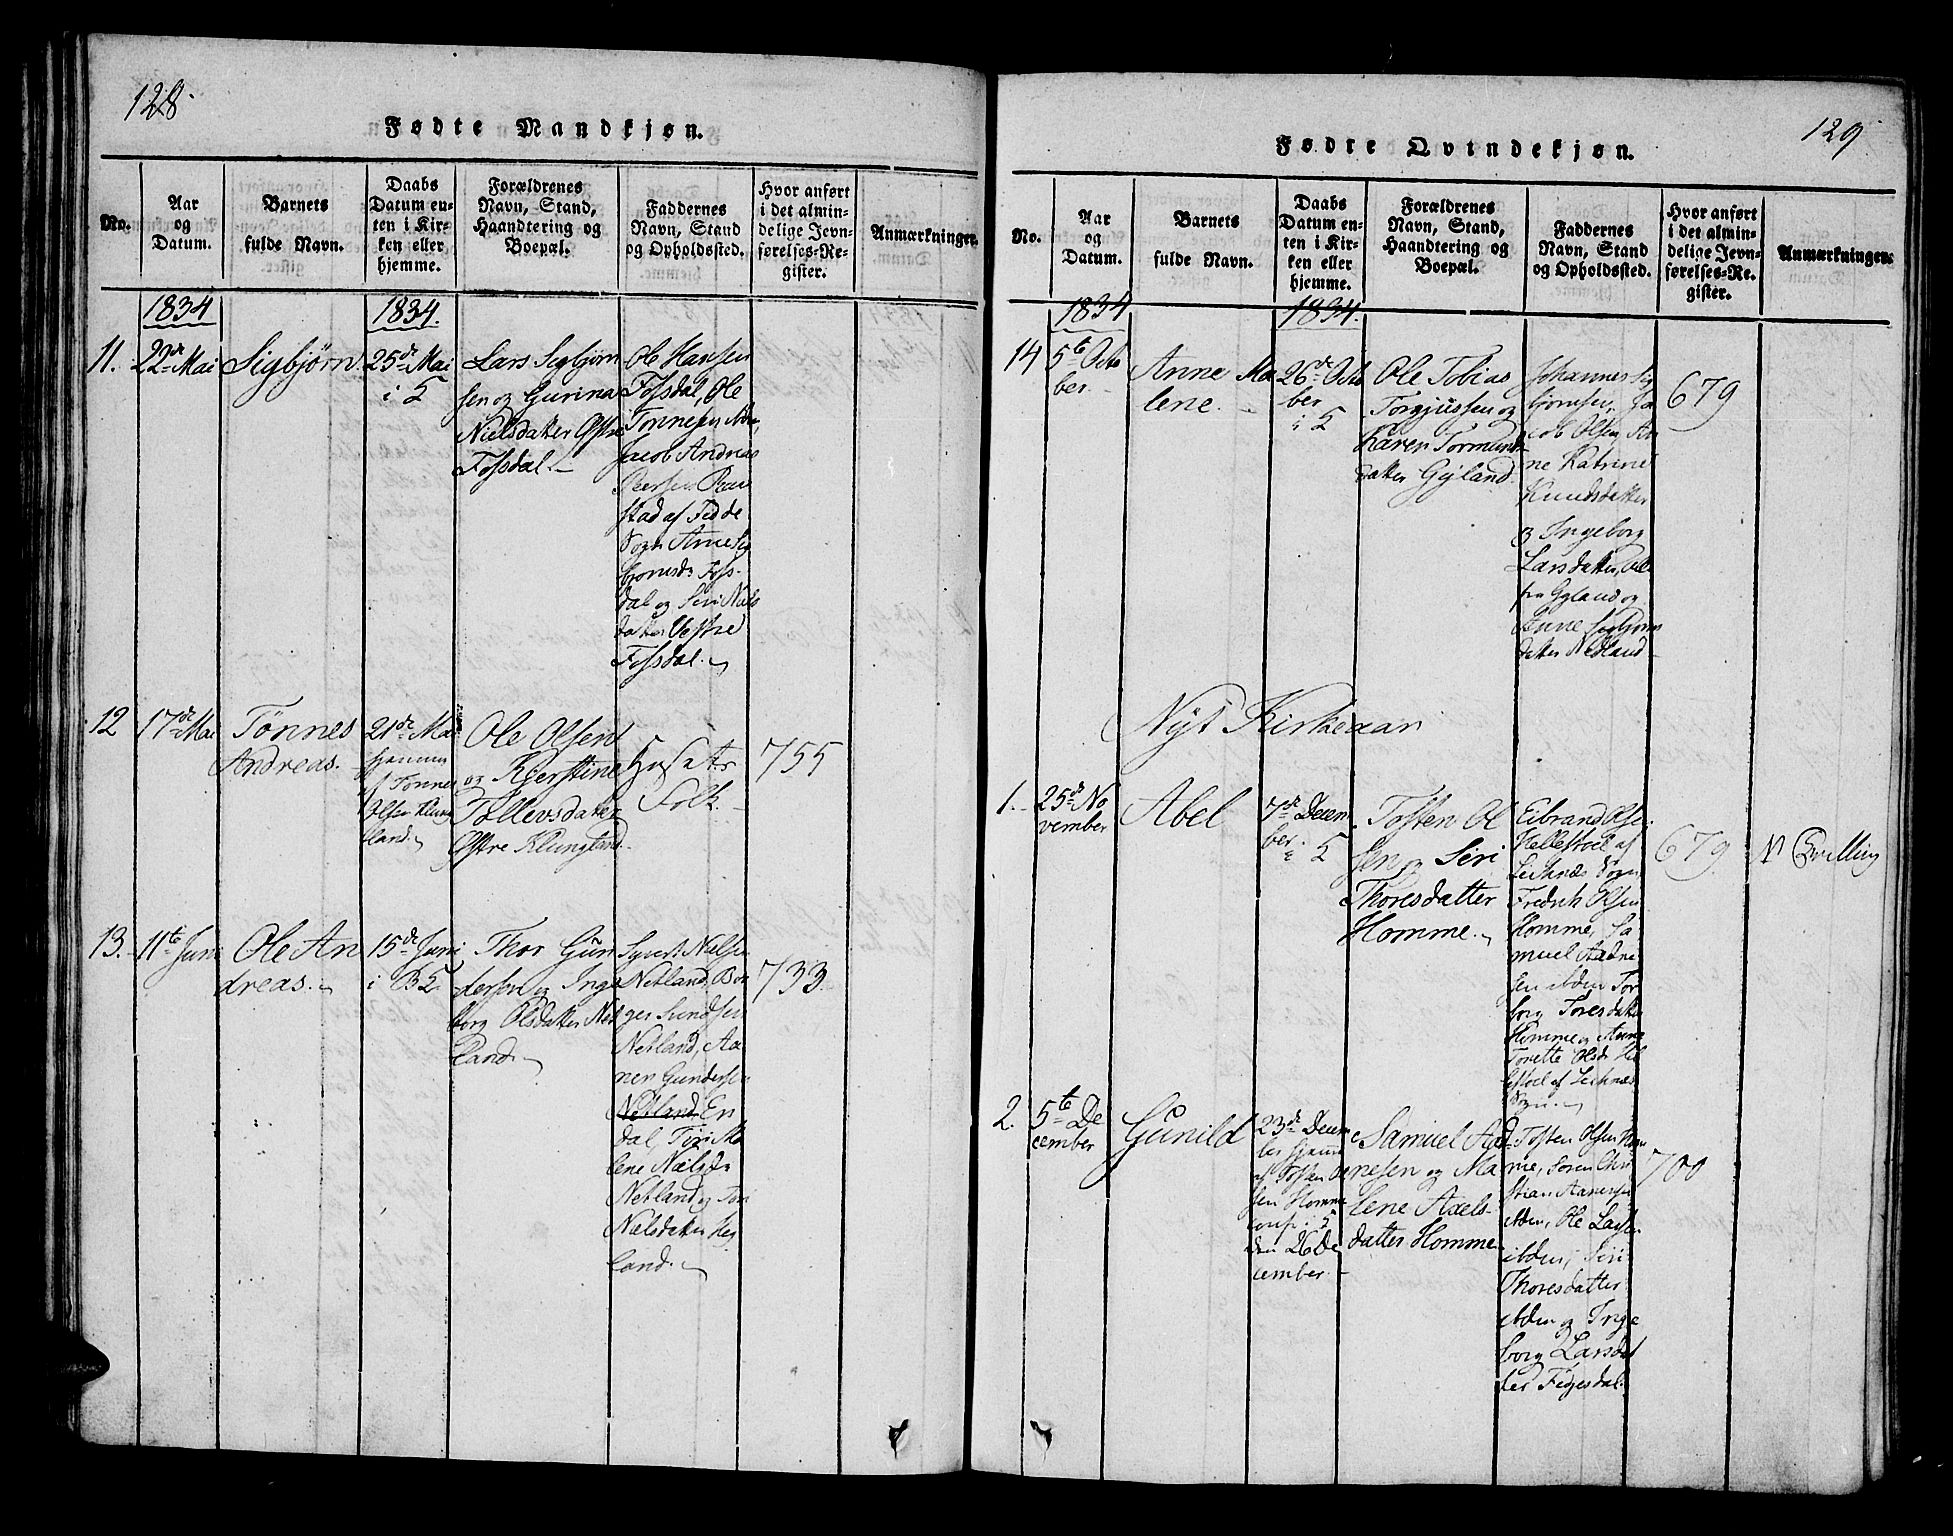 128.
Fødte Mandkjøn.
No.
Aar
og
Datum.
Barnets
fulde Navn.
Daabs
Datum en-
ten i Kir-
ken eller
hjemme.
Forældrenes
Navn, Stand,
Haandtering og
Boepæl.
Faddernes
Navn, Stand
og Opholdssted.
Hvor anført
i det almin-
delige Jevn-
førelses-Re-
gister.
Anmærkninger.
1834
1834.
11.
22de Mai
Sigbjørn
25de Mai
i 5
Lars Sigbjørn
sen og Gurina
Nielsdatter Østre
Fossdal.
Ole Hansen
Fossdal, Ole
Tønnesen
Jacob Andreas
Peersen
stad af Fedde
Sogn Anne Sig
bjornsd. Foss-
dal og Siri Niels
datter Vestre
Fossdal.
12
17de Mai
Tønnes
Andreas.
21de Mai
hjemme
af Tønnes
Olsen Klung
land.
Ole Olsen
og Kierstine
Tollevsdatter
Østre Klungland.
Husets
Folk.
755
13.
11te Juni
Ole An
dreas.
15de Juni
i B5.
Thor Gun
dersen og Inge
borg Olsdatter Net
land.
Syvert Nielsen
Netland, Bor
ger Sundsen
Netland, Aa
nen Gundersen
Netland En
dal, Tiri Ma
lene Nielsd.
Netland og Tori
Nielsdatter Heg
land.
733
129.
Fødte Qvindekjøn.
No.
Aar
og
Datum.
Barnets
fulde Navn.
Daabs
Datum en-
ten i Kir-
ken eller
hjemme.
Forældrenes
Navn, Stand,
Haandtering og
Boepæl.
Faddernes
Navn, Stand
og Opholdssted.
Hvor anført
i det almin-
delige Jevn-
førelses-Re-
gister.
Anmærkninger.
1834
1834.
14
5te Octo
ber.
Anne Ma
lene.
26de Octo
ber
i 5
Ole Tobias
Torgjussen og
Karen Tormunds
datter Gyland.
Johannes Sig
bjørnsen, Ja
cob Olsen, An
ne Katrine
Knudsdatter
og Ingeborg
Larsdatter, alle
fra Gyland og
Anne Sigbjørns
datter Nedland
679
Nyt Kirkeaar
1.
25de No
vember
Abel
7de Decem
ber.
i 5
Tosten Ol
sen og Siri
Thoresdatter
Homme.
Eibrand Olsen
Hellestoel af
Sogn,
Fredrik Olsen
Homme, Sa
muel Aadne
sen ibden Tor
borg Toresdatter
Homme og Anne
Torette Olsd. Hel
lestoel af
Sogn.
679.
N Tvilling
2.
5te De
cember
Gunild
23de Decem
ber hjemme
af Tosten Ol
sen Homme
conf. i 5
den 26 De
cember.
Samuel Aad
nesen og Ma
lene Axels-
datter Homme
Tosten Olsen Hom
me, Søren Chri
stian Aanensen
ibden, Ole Larsen
ibden, Siri
Thoresdatter
ibden og Inge
borg Larsdat
ter Fidjesdal.
700